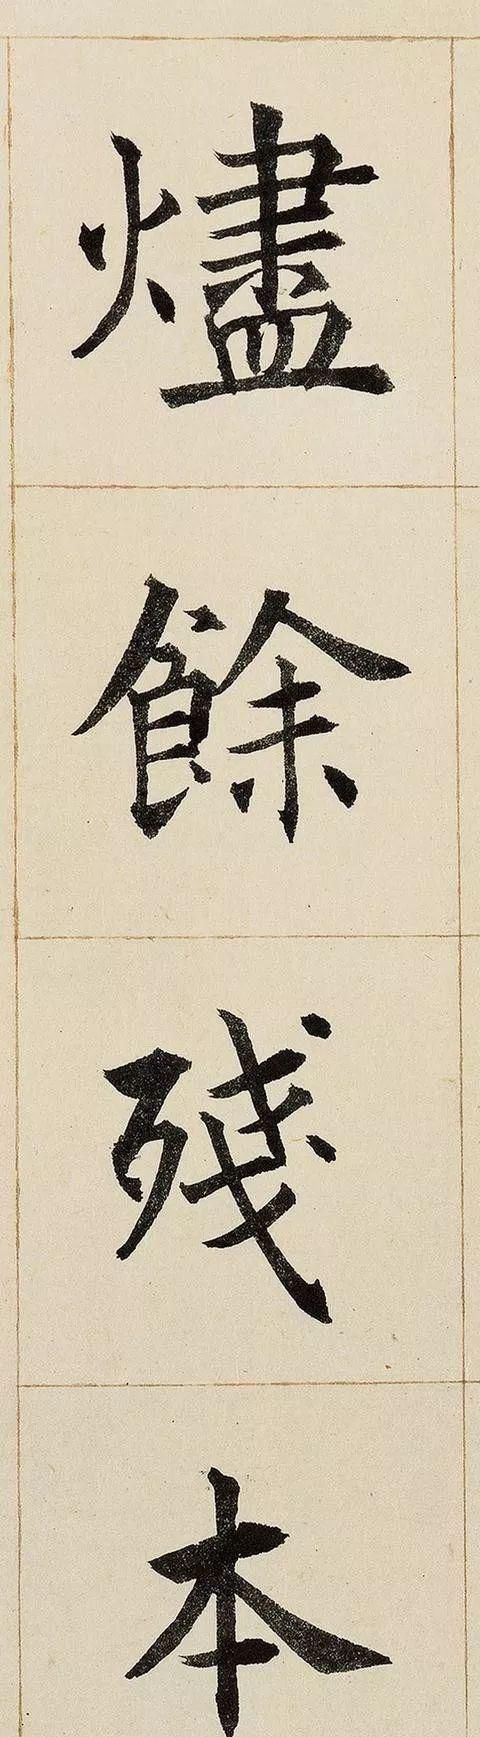 燼餘殘本